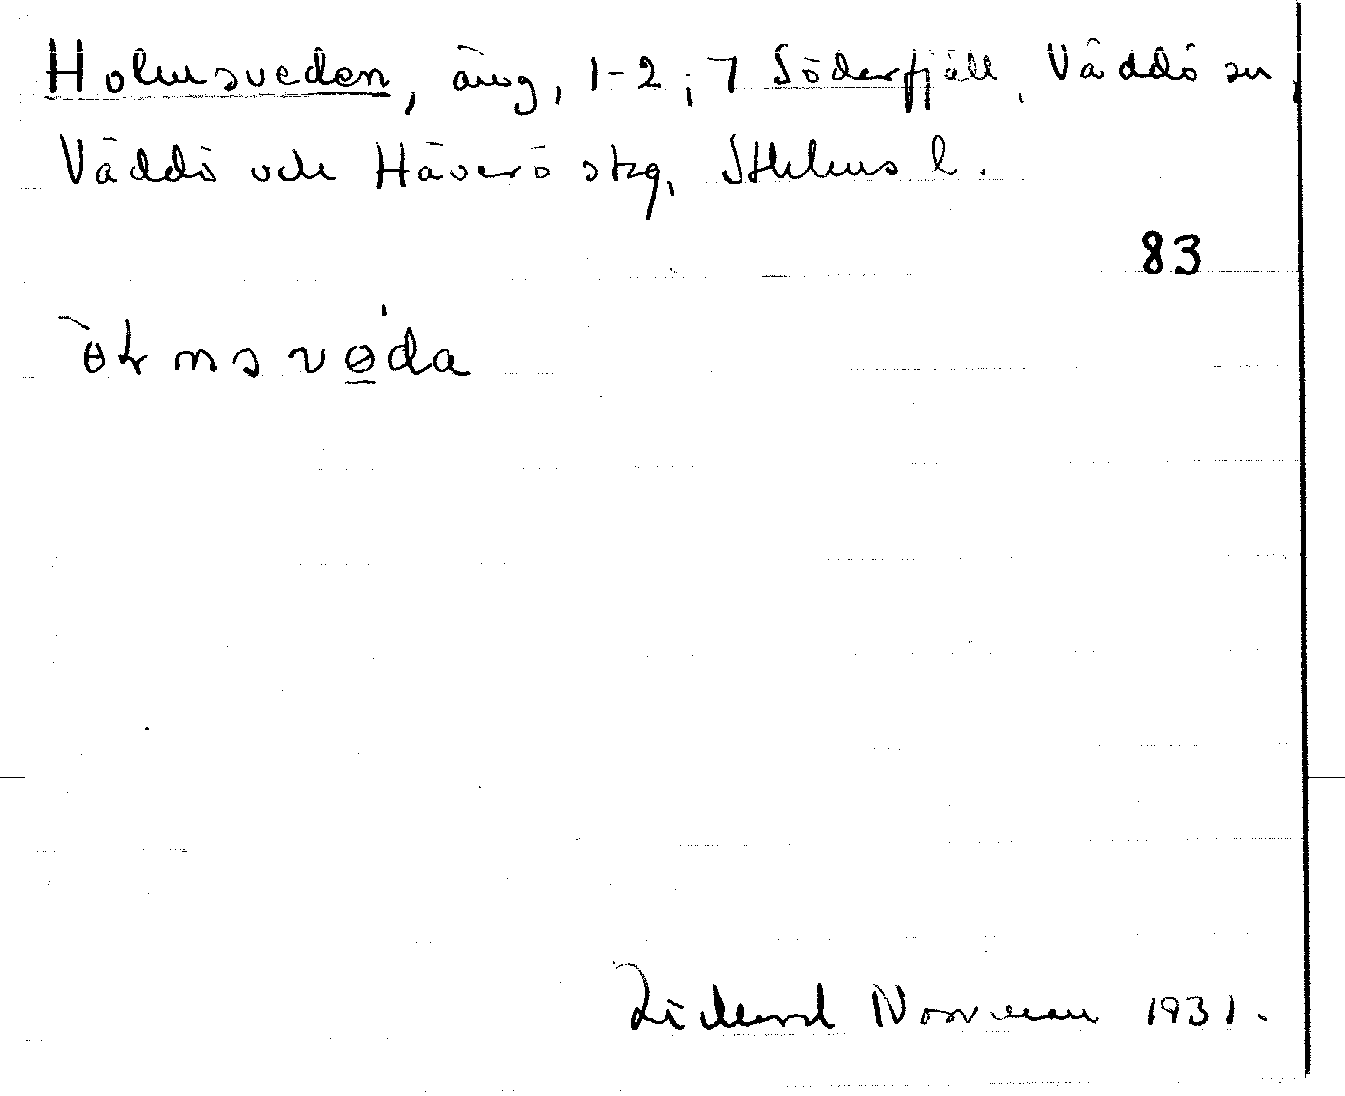 Holmsveden, äng, 1-2, i 7 Söderfjäll, Väddö sn,
Väddö och Häverö skg, Sthlms l.
83
Rickard Norrman 1931.